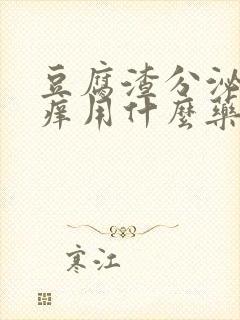 豆腐渣分泌
痒用什麼藥
寒江